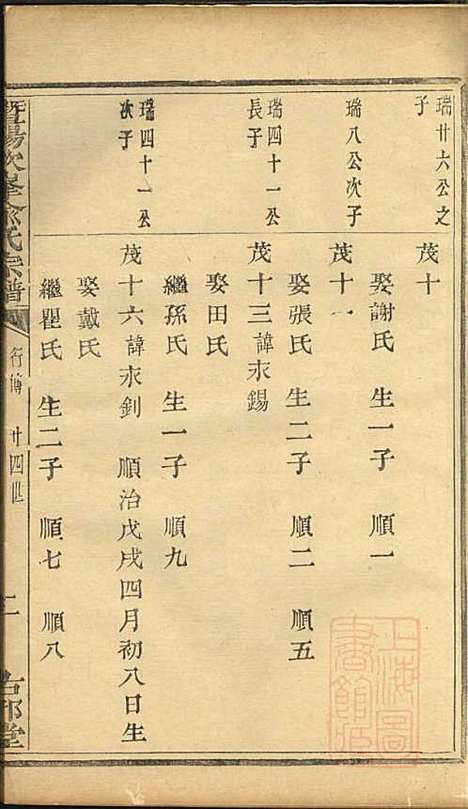 瑞廿六公之
子
茂十
娶謝氏 生一子 順一
瑞八公次子
茂十一
娶張氏 生二子 順二 順五
瑞四十一公
長子
茂十三諱永錫
娶田氏
繼孫氏 生一子 順九
瑞四十一公
次子
茂十六諱永釗 順治戊戌四月初八日生
娶戴氏
繼瞿氏 生二子 順七 順八
暨陽次峯俞氏宗譜
行傳 廿四世
二
上海圖
書館藏